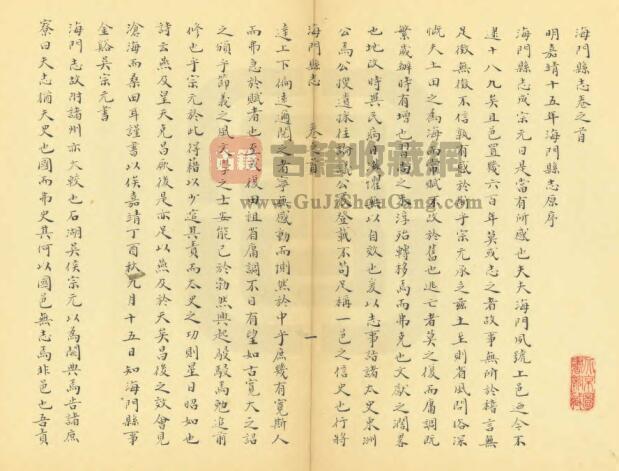 海門縣志卷之首
明嘉靖十五年海門縣志原序
海門縣志成宗元曰是當有所感也夫夫海門夙號上邑迨今不
逮十八九矣且邑置幾六百年莫或志之者故事無所於稽言無
足徵無徵不信孰有感於
乎宗元承乏茲土至則省風問俗深
慨夫土田之為海而常賦
改於舊也逃亡者莫之復而庸調既
繁歲辦時有增也習尚之
淳殆轉移焉而弗克也文獻之濶畧
也地改時異民病日
懼無以自效也爰以志事諮諸太史東洲
公焉公搜遺採往
公
登載不茍足稱一邑之信史也行將
海門縣志
卷之首
一
達上下倘遠邇聞之者寧無感動而惻然於中乎庶幾有寬斯人
而弗急於賦者也至或復田租省庸調不日有望如古寬大之詔
之頒乎節義之風文
之士安能已於勃然興起駸駸焉勉追前
修也乎宗元於此得藉以少逭其責而太史之功則星日昭如也
詩云燕及皇天克昌厥後是亦足以燕及於天英昌後之效會見
滄海而桑田耳謹書以俟嘉靖丁酉秋九月十五日知海門縣事
金谿吳宗元書
海門志故附諸州亦大較也石湖吳侯宗元以為闕典焉告諸庶
寮曰夫志猶夫史也國而弗史其何以國邑無志焉非邑也吾責
古籍收藏网
www.GuJiShouCang.com